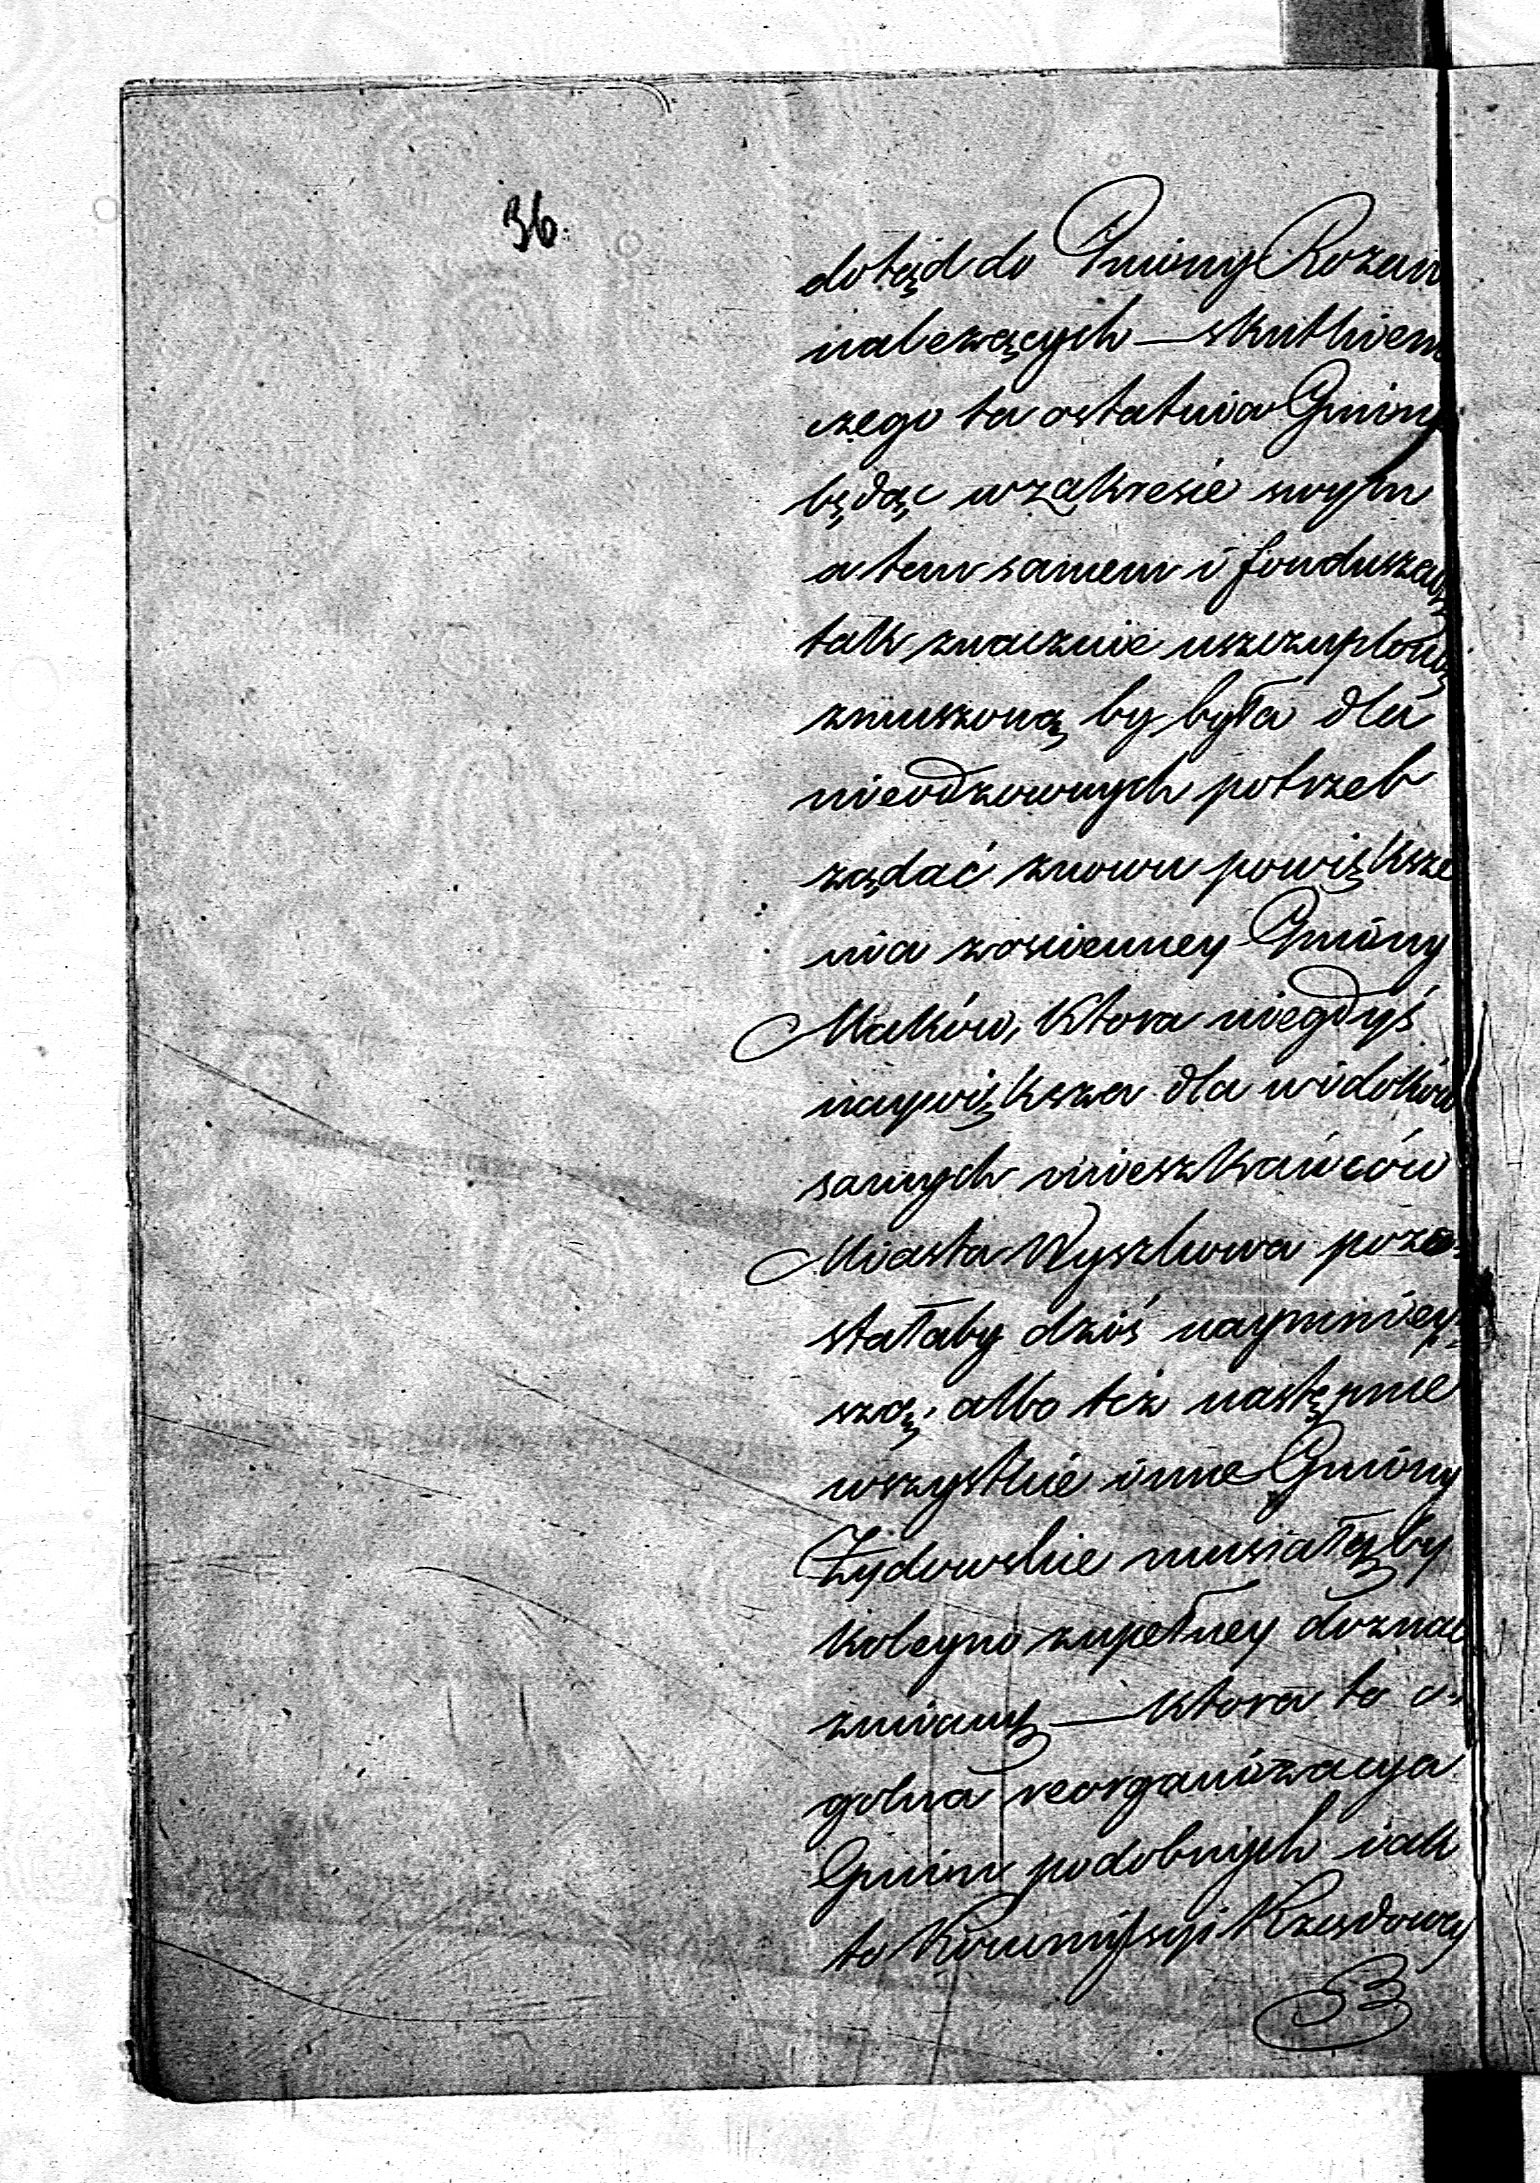 36.
dotąd do Gminy Rozan
należących — skutkiem
czego ta ostatnia Gmina
będąc w zakresie swym
a tem samem i funduszach
tak znacznie uszczuploną
zmuszoną by była dla
nieodzownych potrzeb
żądać znowu powiększe
nia zosienney Gminy
Maków, ktora niegdyś
naywiększa dla widoków
samych mieszkańców
Miasta Wyszkowa pozo-
stałaby dziś naymniey-
szą, albo też następnie
wszystkie inne Gminy
Żydowskie musiałyby
koleyno zupełney doznać
zmiany — ktora to o-
golna reorganizacya
Gmin podobnych iak
to Kommissyi Rządowey